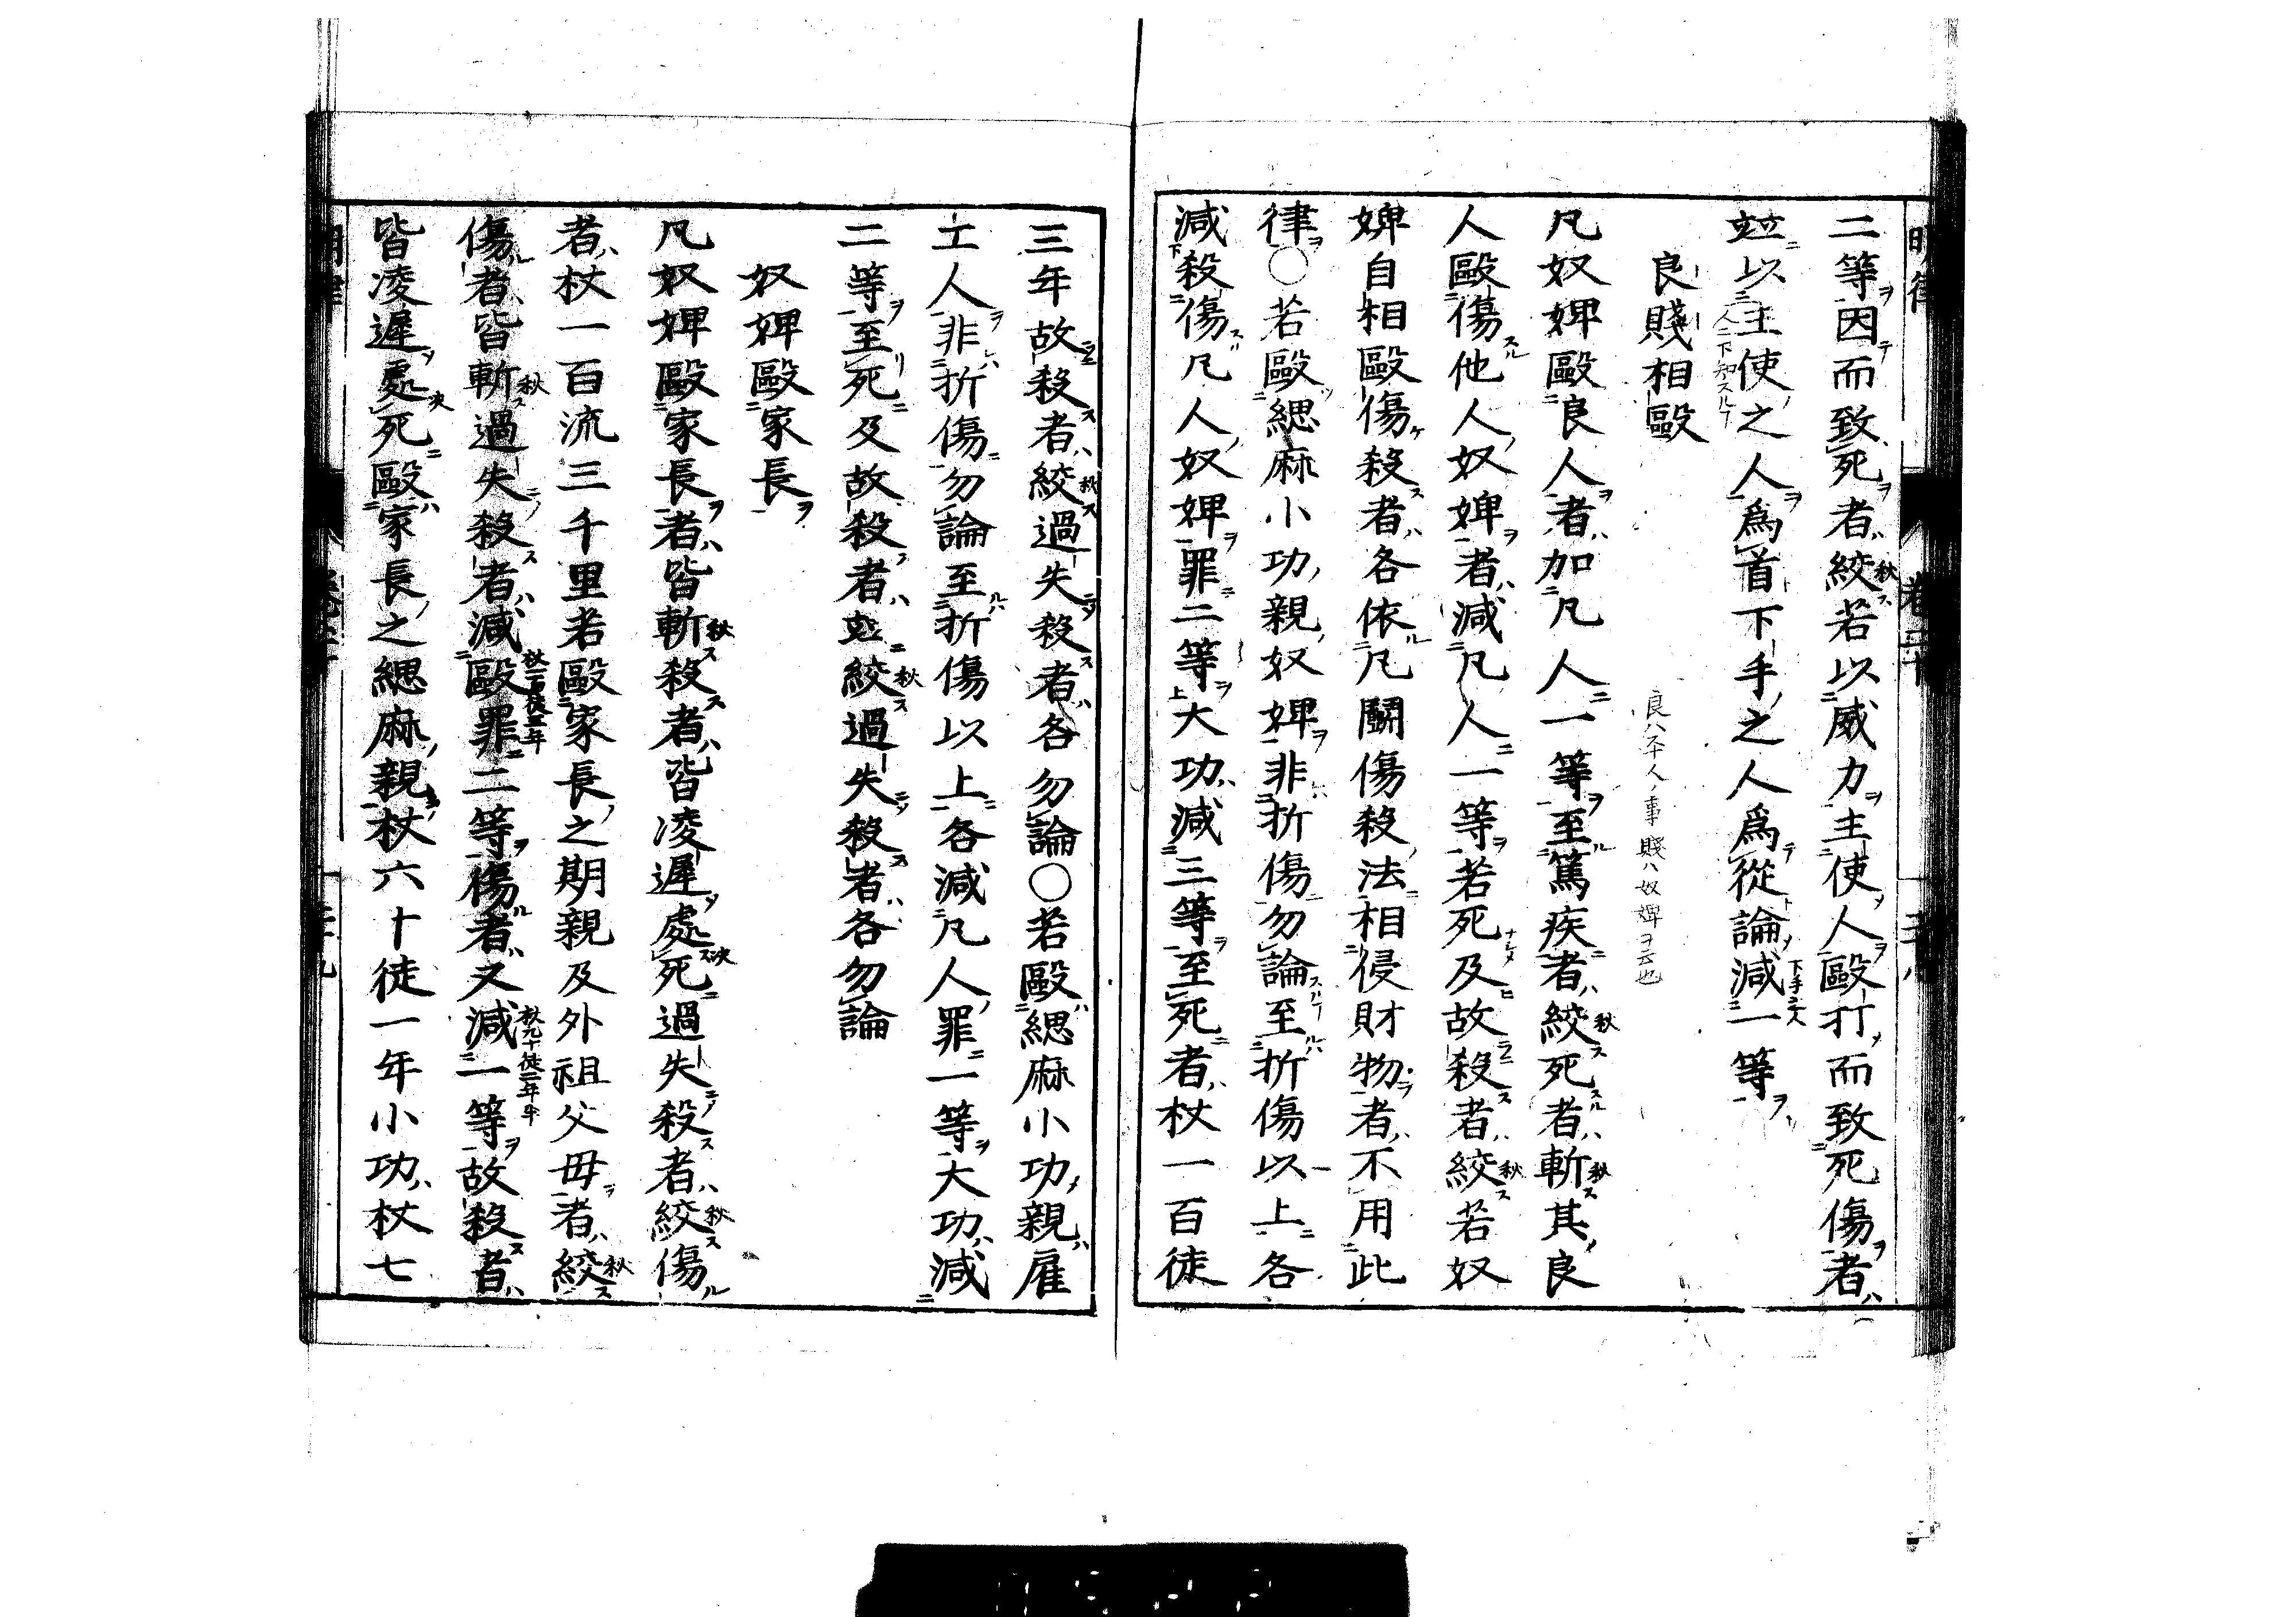 二等因而致死者絞若以威力主使人毆打而致死傷者
竝以主使之人爲首下手之人爲從論減一等
良賤相毆
良ハ平人ノ事賤ハ奴婢ヲ云也
凡奴婢毆良人者加凡人一等至篤疾者絞死者斬其良
人毆傷他人奴婢者減凡人一等若死及故殺者絞若奴
婢自相毆傷殺者各依凡鬭傷殺法相侵財物者不用此
律〇若毆緦麻小功親奴婢非折傷勿論至折傷以上各
減殺傷凡人奴婢罪二等大功減三等至死者杖一百徒
三年故殺者絞過失殺者各勿論〇若毆緦麻小功親雇
工人非折傷勿論至折傷以上各減凡人罪一等大功減
二等至死及故殺者竝絞過失殺者各勿論
奴婢毆家長
凡奴婢毆家長者皆斬殺者皆凌遲處死過失殺者絞傷
者杖一百流三千里若毆家長之期親及外祖父母者絞
傷者皆斬過失殺者減毆罪二等傷者又減一等故殺者
皆凌遲處死毆家長之緦麻親杖六十徒一年小功杖七